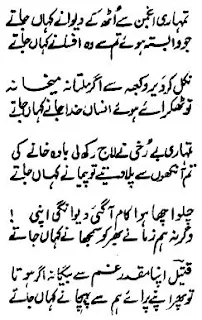 تمہاری انجمن سے اُٹھ کے دیوانے کہاں جاتے
جو وابستہ ہوئے تم سے وہ افسانے کہاں جاتے
نکل کر دیر و کعبہ سے اگر ملتا نہ میخانہ
تو ٹھکرائے ہوئے انساں خدا جانے کہاں جاتے
تمہاری بے رُخی نے لاج رکھ لی بادہ خانے کی
تم آنکھوں سے پلا دیتے تو پیمانے کہاں جاتے
چلو اچھا ہوا کام آ گئی دیوانگی اپنی !
وگرنہ ہم زمانے بھر کو سمجھانے کہاں جاتے
قتیلؔ اپنا مقدر غم سے بیگانہ اگر ہوتا
تو پھر اپنے پرائے ہم سے پہچانے کہاں جاتے